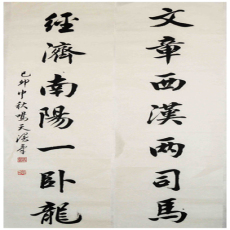 文章西漢兩司馬
經濟南陽一卧龍
己卯中秋鳴天